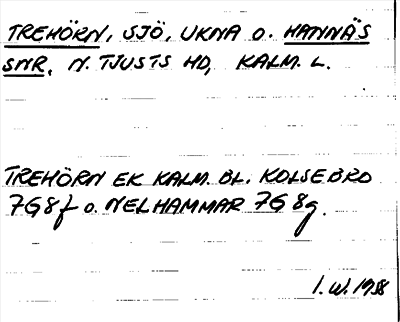 TREHÖRN, SJÖ, UKNA O. HANNÄS
SNR, N. TJUSTS HD, KALM. L.
TREHÖRN EK KALM. BL. KOLSEBRO
7G8f o. NELHAMMAR 7G8g.
I. W. 1958